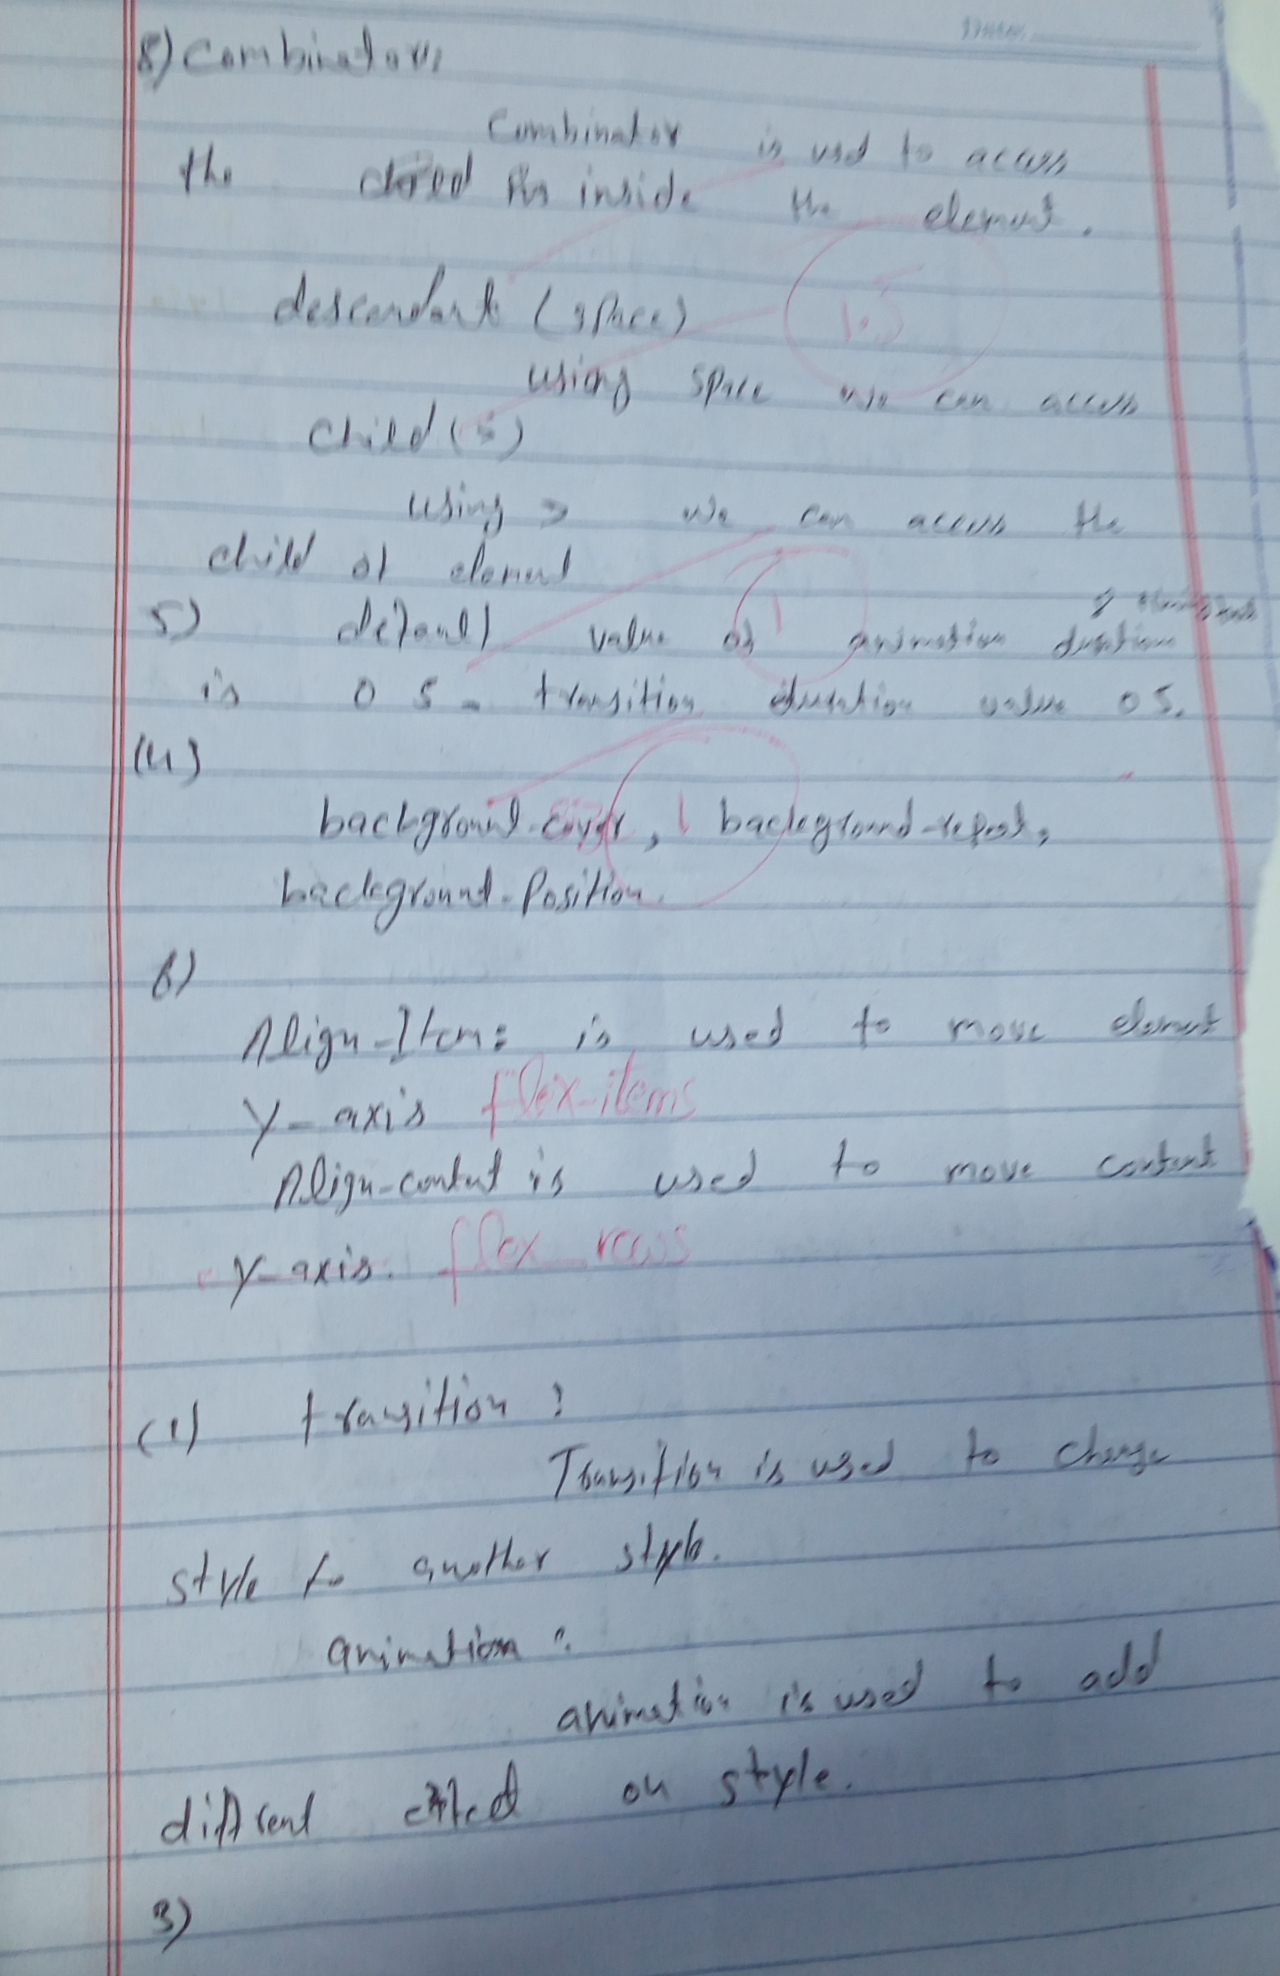 8) Combinators
Combinator is used to access
the inside the element.
descendant (space)
1.5
using space we can access
child (>)
using > we can access the
child of element
5) default value of animation duration
1
is 0 s. transition duration value 0 s.
(4)
background-, background-repeat,
1
background-position.
6)
Align-Items is used to move element
Y-axis flex-items
Align-content is used to move content
Y-axis. flex rows
(1) transition :
Transition is used to change
style to another style.
animation :
animation is used to add
different effect on style.
3)